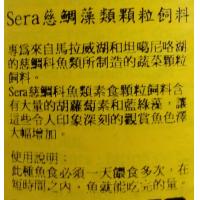 Sera慈鯛藻類顆粒飼料
專為來自馬拉威湖和坦噶尼喀湖
的慈鯛科魚類所制造的蔬菜顆粒
Sera慈鯛科魚類素食顆粒飼料含
有大量的胡蘿蔔素和藍綠藻，讓
這些令人印象深刻的觀賞魚色澤
大幅增加。
使用說明：
此種魚食必須一天餵食多次，在
短時間之內，魚就能吃完的量。